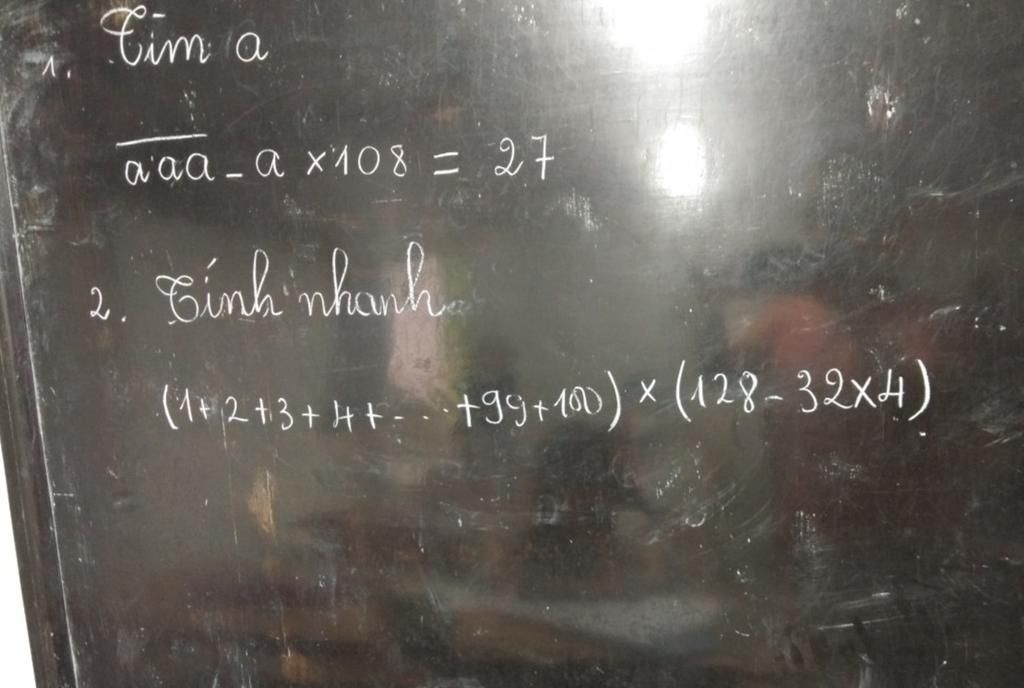 1. Tìm a
aaa - a × 108 = 27
2. Tính nhanh
(1+2+3+4+-...+99+100) × (128 - 32×4)